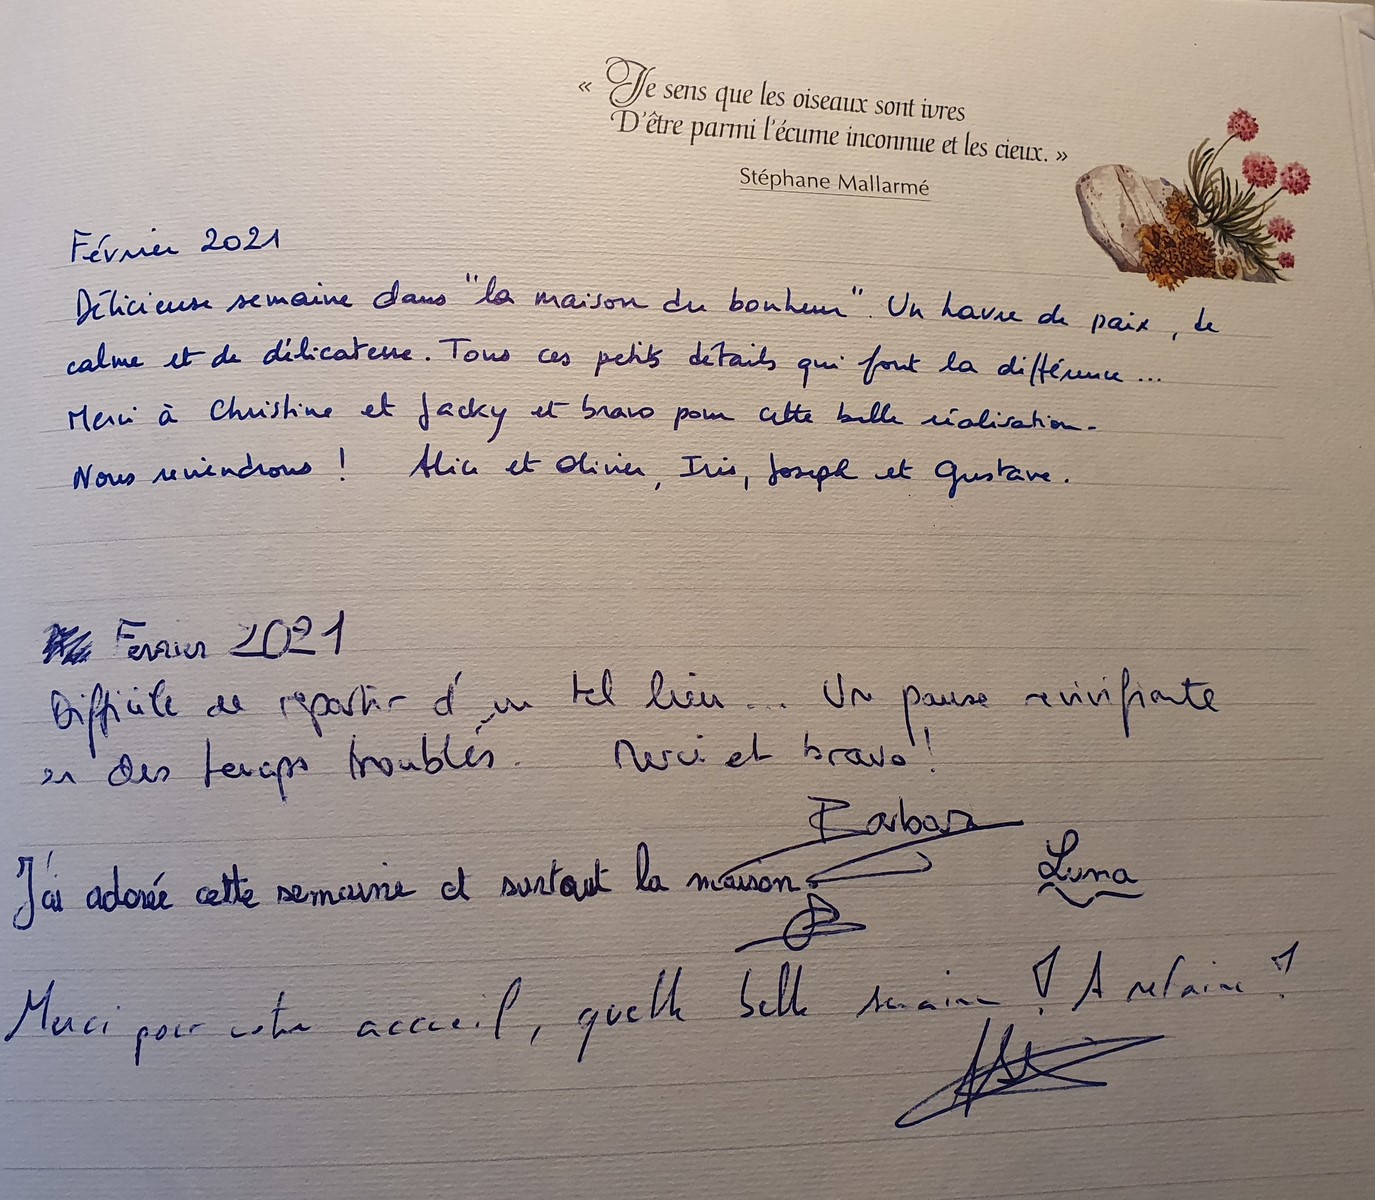 « Je sens que les oiseaux sont ivres
D'être parmi l'écume inconnue et les cieux. »
Stéphane Mallarmé
Février 2021
Délicieuse semaine dans "la maison du bonheur". Un havre de paix, de
calme et de délicatesse. Tous ces petits détails qui font la différence...
Merci à Christine et Jacky et bravo pour cette belle réalisation.
Nous reviendrons ! Alice et Olivier, Iris, Joseph et Gustave.
Fevrier 2021
Difficile de repartir d'un tel lieu... Un pause revivifiante
en des temps troublés. Merci et bravo !
J'ai adorée cette semaine et surtout la maison.
Luna
Merci pour votre accueil, quelle belle semaine ! A refaire !